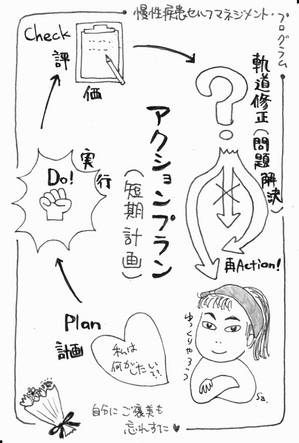 慢性疾患セルフマネジメント・プログラム
Check
評価
軌道修正(問題解決)
アクションプラン
(短期計画)
Do!
実行
再Action!
Plan
計画
私は
何がしたい??
ゆっくりやろう
Sa.
自分にご褒美も
忘れずに♥